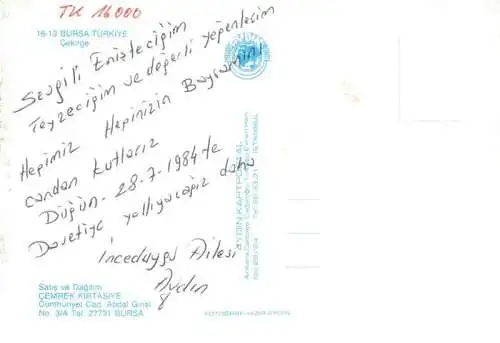 TK 16000
16-13 BURSA-TÜRKİYE
Çekirge
Sevgili Enişteciğim
Teyzeciğim ve değerli yeğenlerim
Hepimiz Hepinizin Bayramını
candan kutlarız
Düğün - 28-7-1984-te
Davetiye yollıyacağız daha
İnceduygu Ailesi
Aydın
Satış ve Dağıtım
ÇEMREK KIRTASİYE
Cumhuriyet Cad. Abdal Girişi
No. 3/A Tel. 27731 BURSA
AYDIN KARTPOSTAL
Ankara Caddesi
İSTANBUL